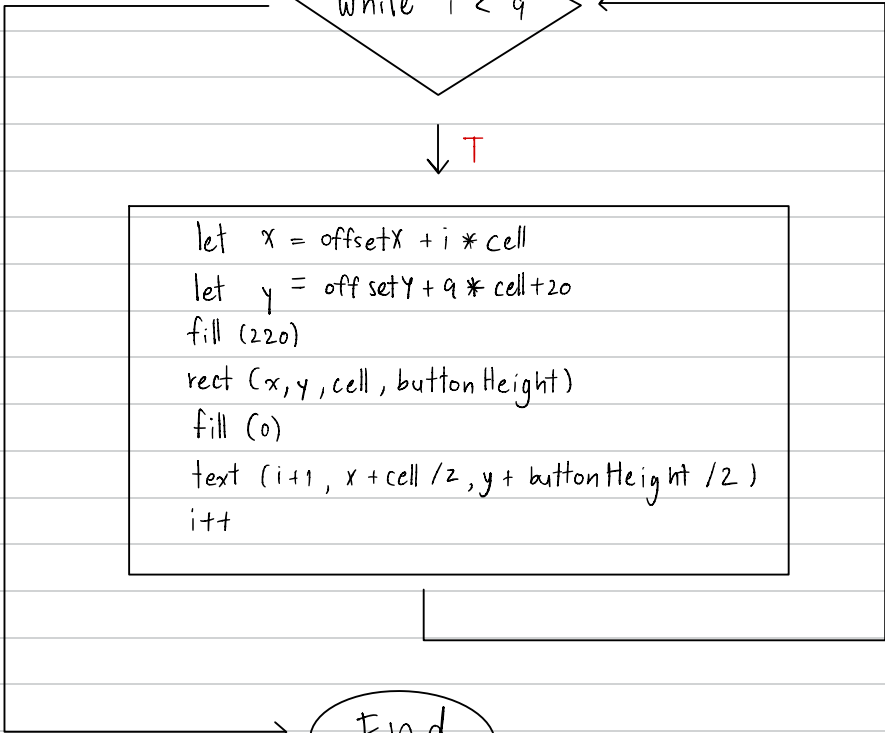 while i < 9
T
let x = offsetX + i * cell
let y = offsetY + 9 * cell+20
fill (220)
rect (x, y, cell, buttonHeight)
fill (0)
text (i+1, x + cell /2, y + buttonHeight /2)
i++
End